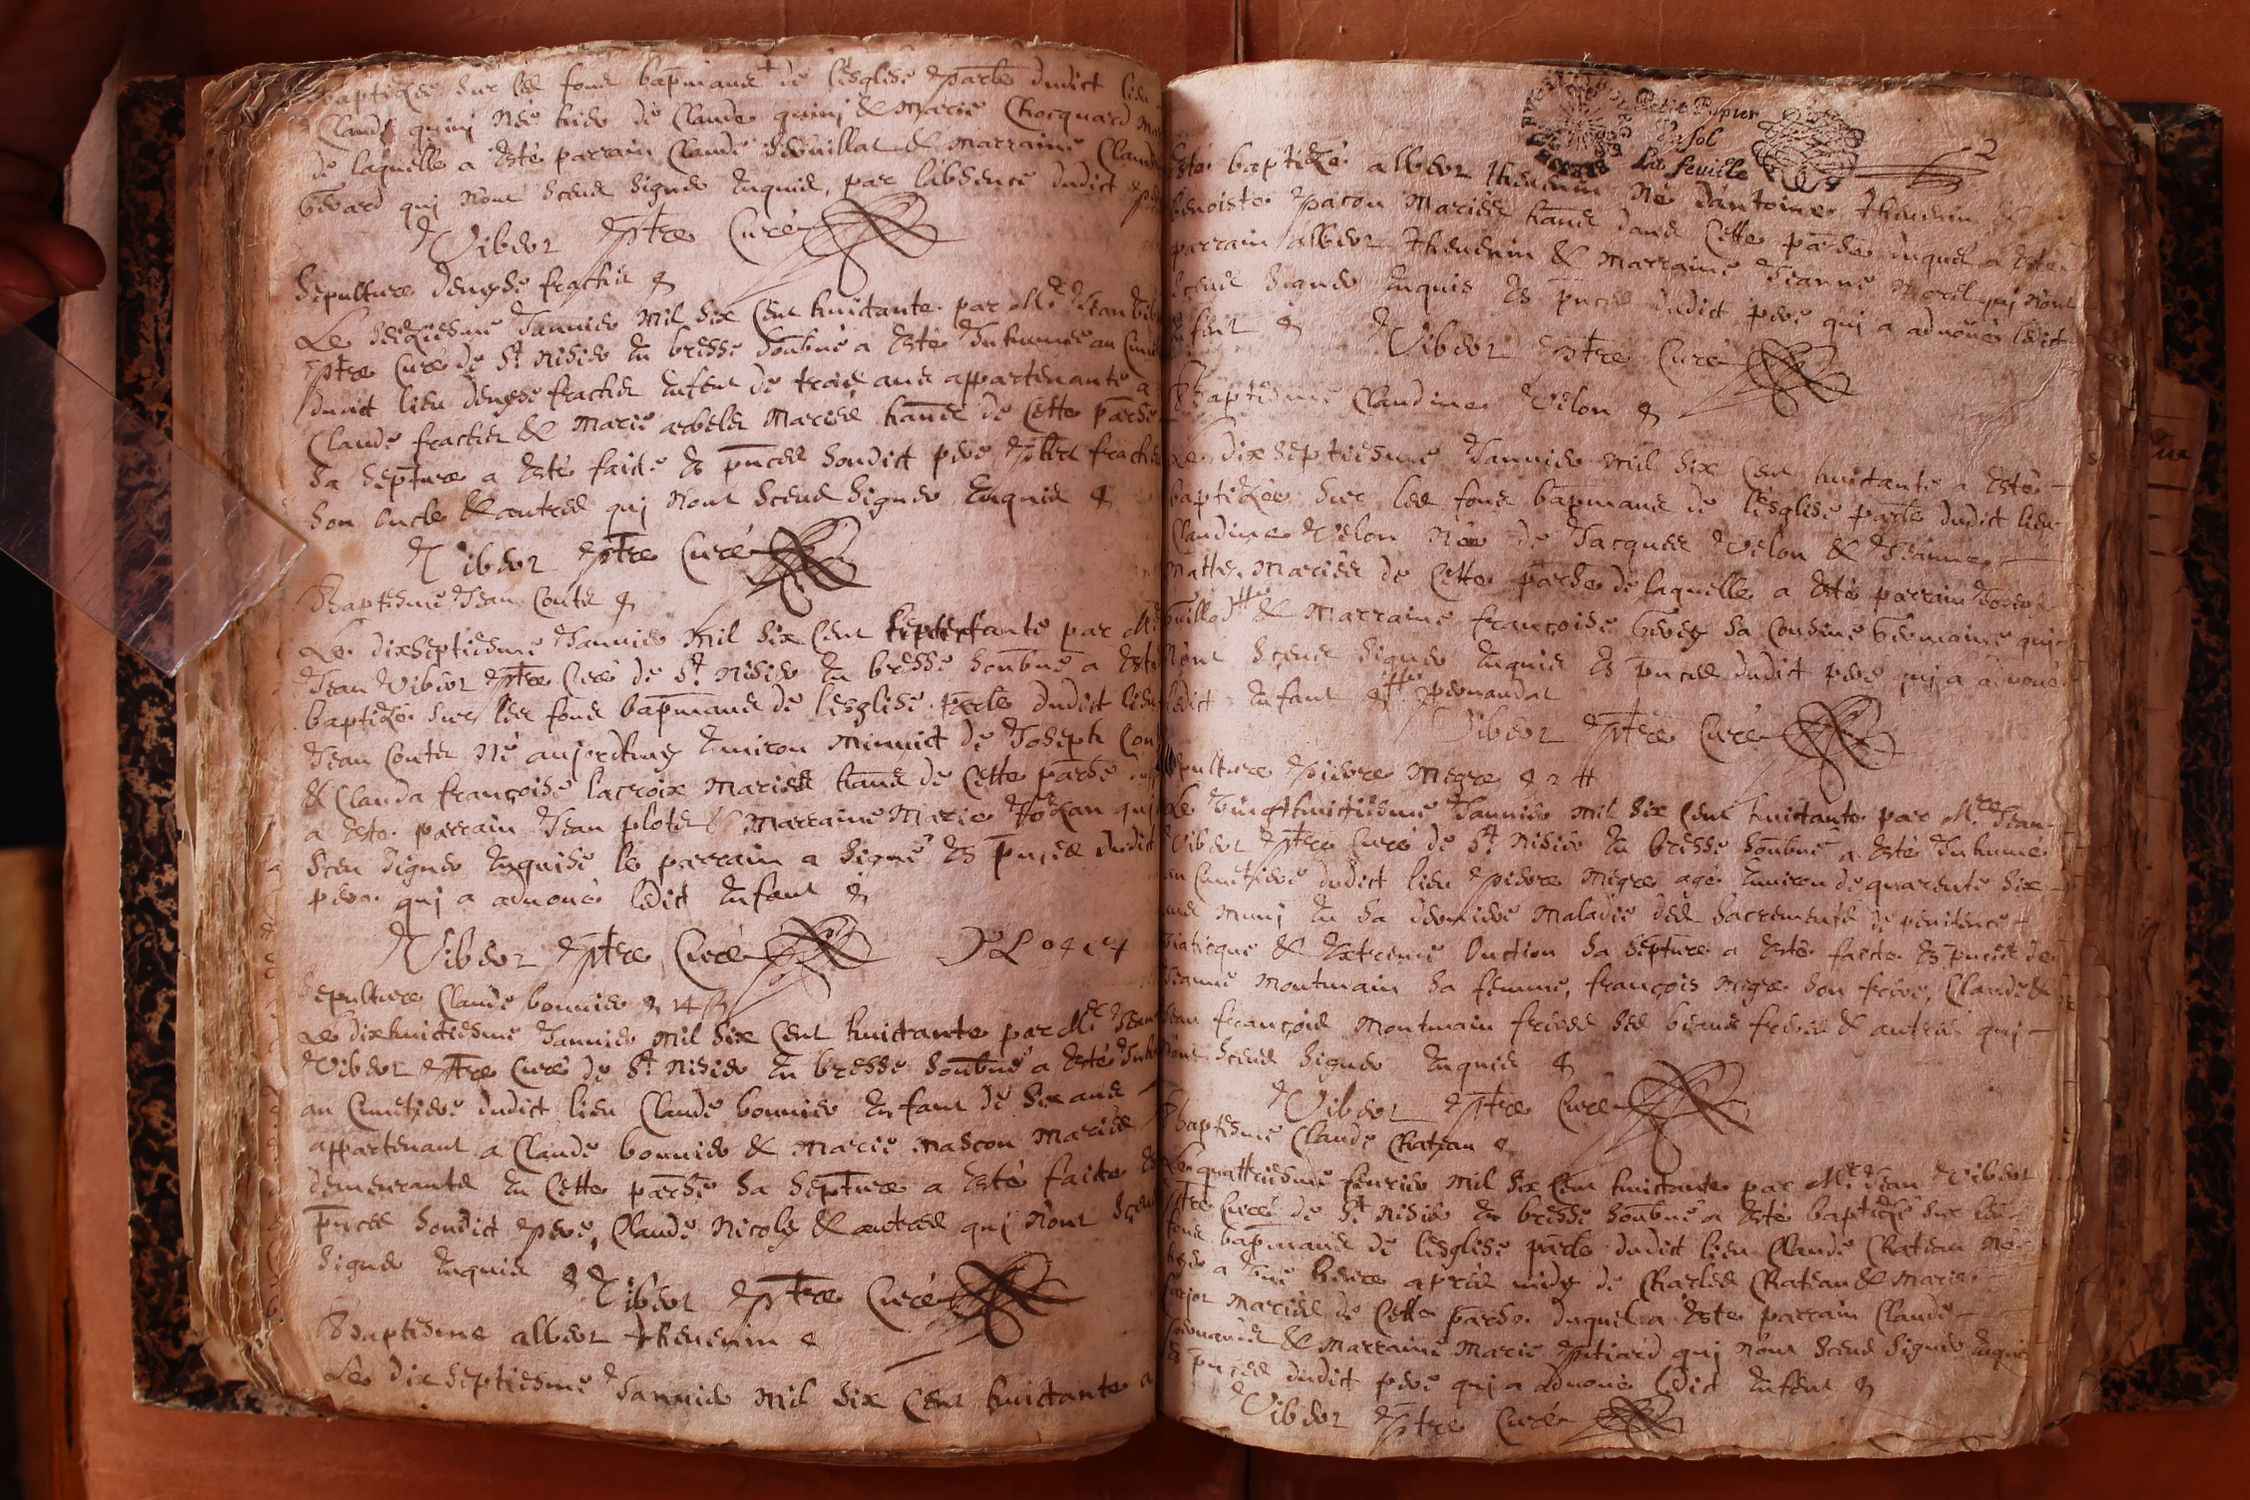 baptizée sur les fons bapmaus de l'esglise parle dudict lieu
Clauda quinj née hier de Claude quinj & Marie Chocquard
de laquelle a esté parrain Claude & marraine Clauda
qui n'ont sceus signer enquis, par l'absence dudict
Vibert ptre Curé
Sepulture denyse frachet &
Le seziesme Janvier mil six cent huictante par Mre Jean
ptre Curé de St Nisier en bresse soubné a esté Inhumée au
dudict lieu denyse frachet enfent de trois ans appartenante a
Claude frachet & Marie mariés hans de cette parse
sa septure a esté faicte es pnces sondict pere frachet
son oncle & autres qui n'ont sceus signer enquis &
Vibert ptre Curé
Baptesme Jean Contet &
Le dixseptiesme Janvier mil six cent par Mre
Jean Vibert ptre Curé de St Nisier en bresse soubné a esté
baptizé sur les fons bapmaus de l'esglise parle dudict lieu
Jean Contet né aujordhuy environ minuict de Joseph
& Clauda françoise lacroix mariés hans de cette parse
a esté parrain Jean plotet & marraine Marie
sceu signer enquise le parrain a signé es pnces dudict
pere qui a advoué ledict enfent &
Vibert ptre Curé
Sepulture Claude bonnier &
Le dixhuictiesme Janvier mil six cent huictante par Mre Jean
Vibert ptre Curé de St Nisier en bresse soubné a esté
au Cimetiere dudict lieu Claude bonnier enfant de six ans
appartenant a Claude bonnier & Marie mascon mariés
demeurants en cette parse sa septure a esté faicte
pnces sondict pere, Claude Nicoly & autres qui n'ont sceus
signer enquis &
Vibert ptre Curé
Baptesme albert thevenin &
Le dix septiesme Janvier mil six cent huictante a
Petit Papier
Un sol
La feuille
2
esté baptizé albert thevenin né d'antoine thevenin &
benoiste pacon mariés hans dans cette parse duquel a esté
parrain albert thevenin & marraine Jeanne morel qui n'ont
sceus signer enquis es pnces dudict pere qui a advoué ledict
enfent &
Vibert ptre Curé
Baptesme Claudine Velon &
Le dix septiesme Janvier mil six cent huictante a esté
baptizée sur les fons bapmaus de l'esglise parle dudict lieu
Claudine Velon née de Jacques Velon & Jeanne
mathy mariés de cette parse de laquelle a esté parrain
& marraine françoise sa cousine germaine qui
n'ont sceus signer enquis es pnces dudict pere qui a advoué
ledict enfant &
Vibert ptre Curé
Sepulture pierre megre &
Le vingthuictiesme Janvier mil six cent huictante par Mre Jean
Vibert ptre Curé de St Nisier en bresse soubné a esté Inhumé
au Cimetiere dudict lieu pierre megre agé environ de quarente six
ans muny en sa derniere maladie des sacrements de penitence
viaticque & extreme Onction sa septure a esté faicte es pnces de
Jeanne montmain sa femme, françois megre son frere, Claude &
Jean françois montmain freres ses beaus freres & autres qui
n'ont sceus signer enquis &
Vibert ptre Curé
Baptesme Claude Chateau &
Le quattriesme febvrier mil six cent huictante par Mre Jean Vibert
ptre Curé de St Nisier en bresse soubné a esté baptizé sur les
fons bapmaus de l'esglise parle dudict lieu Claude Chateau né
hier a une heure apres midy de Charles Chateau & Marie
mariés de cette parse duquel a esté parrain Claude
& marraine Marie qui n'ont sceus signer enquis
es pnces dudict pere qui a advoué ledict enfent &
Vibert ptre Curé